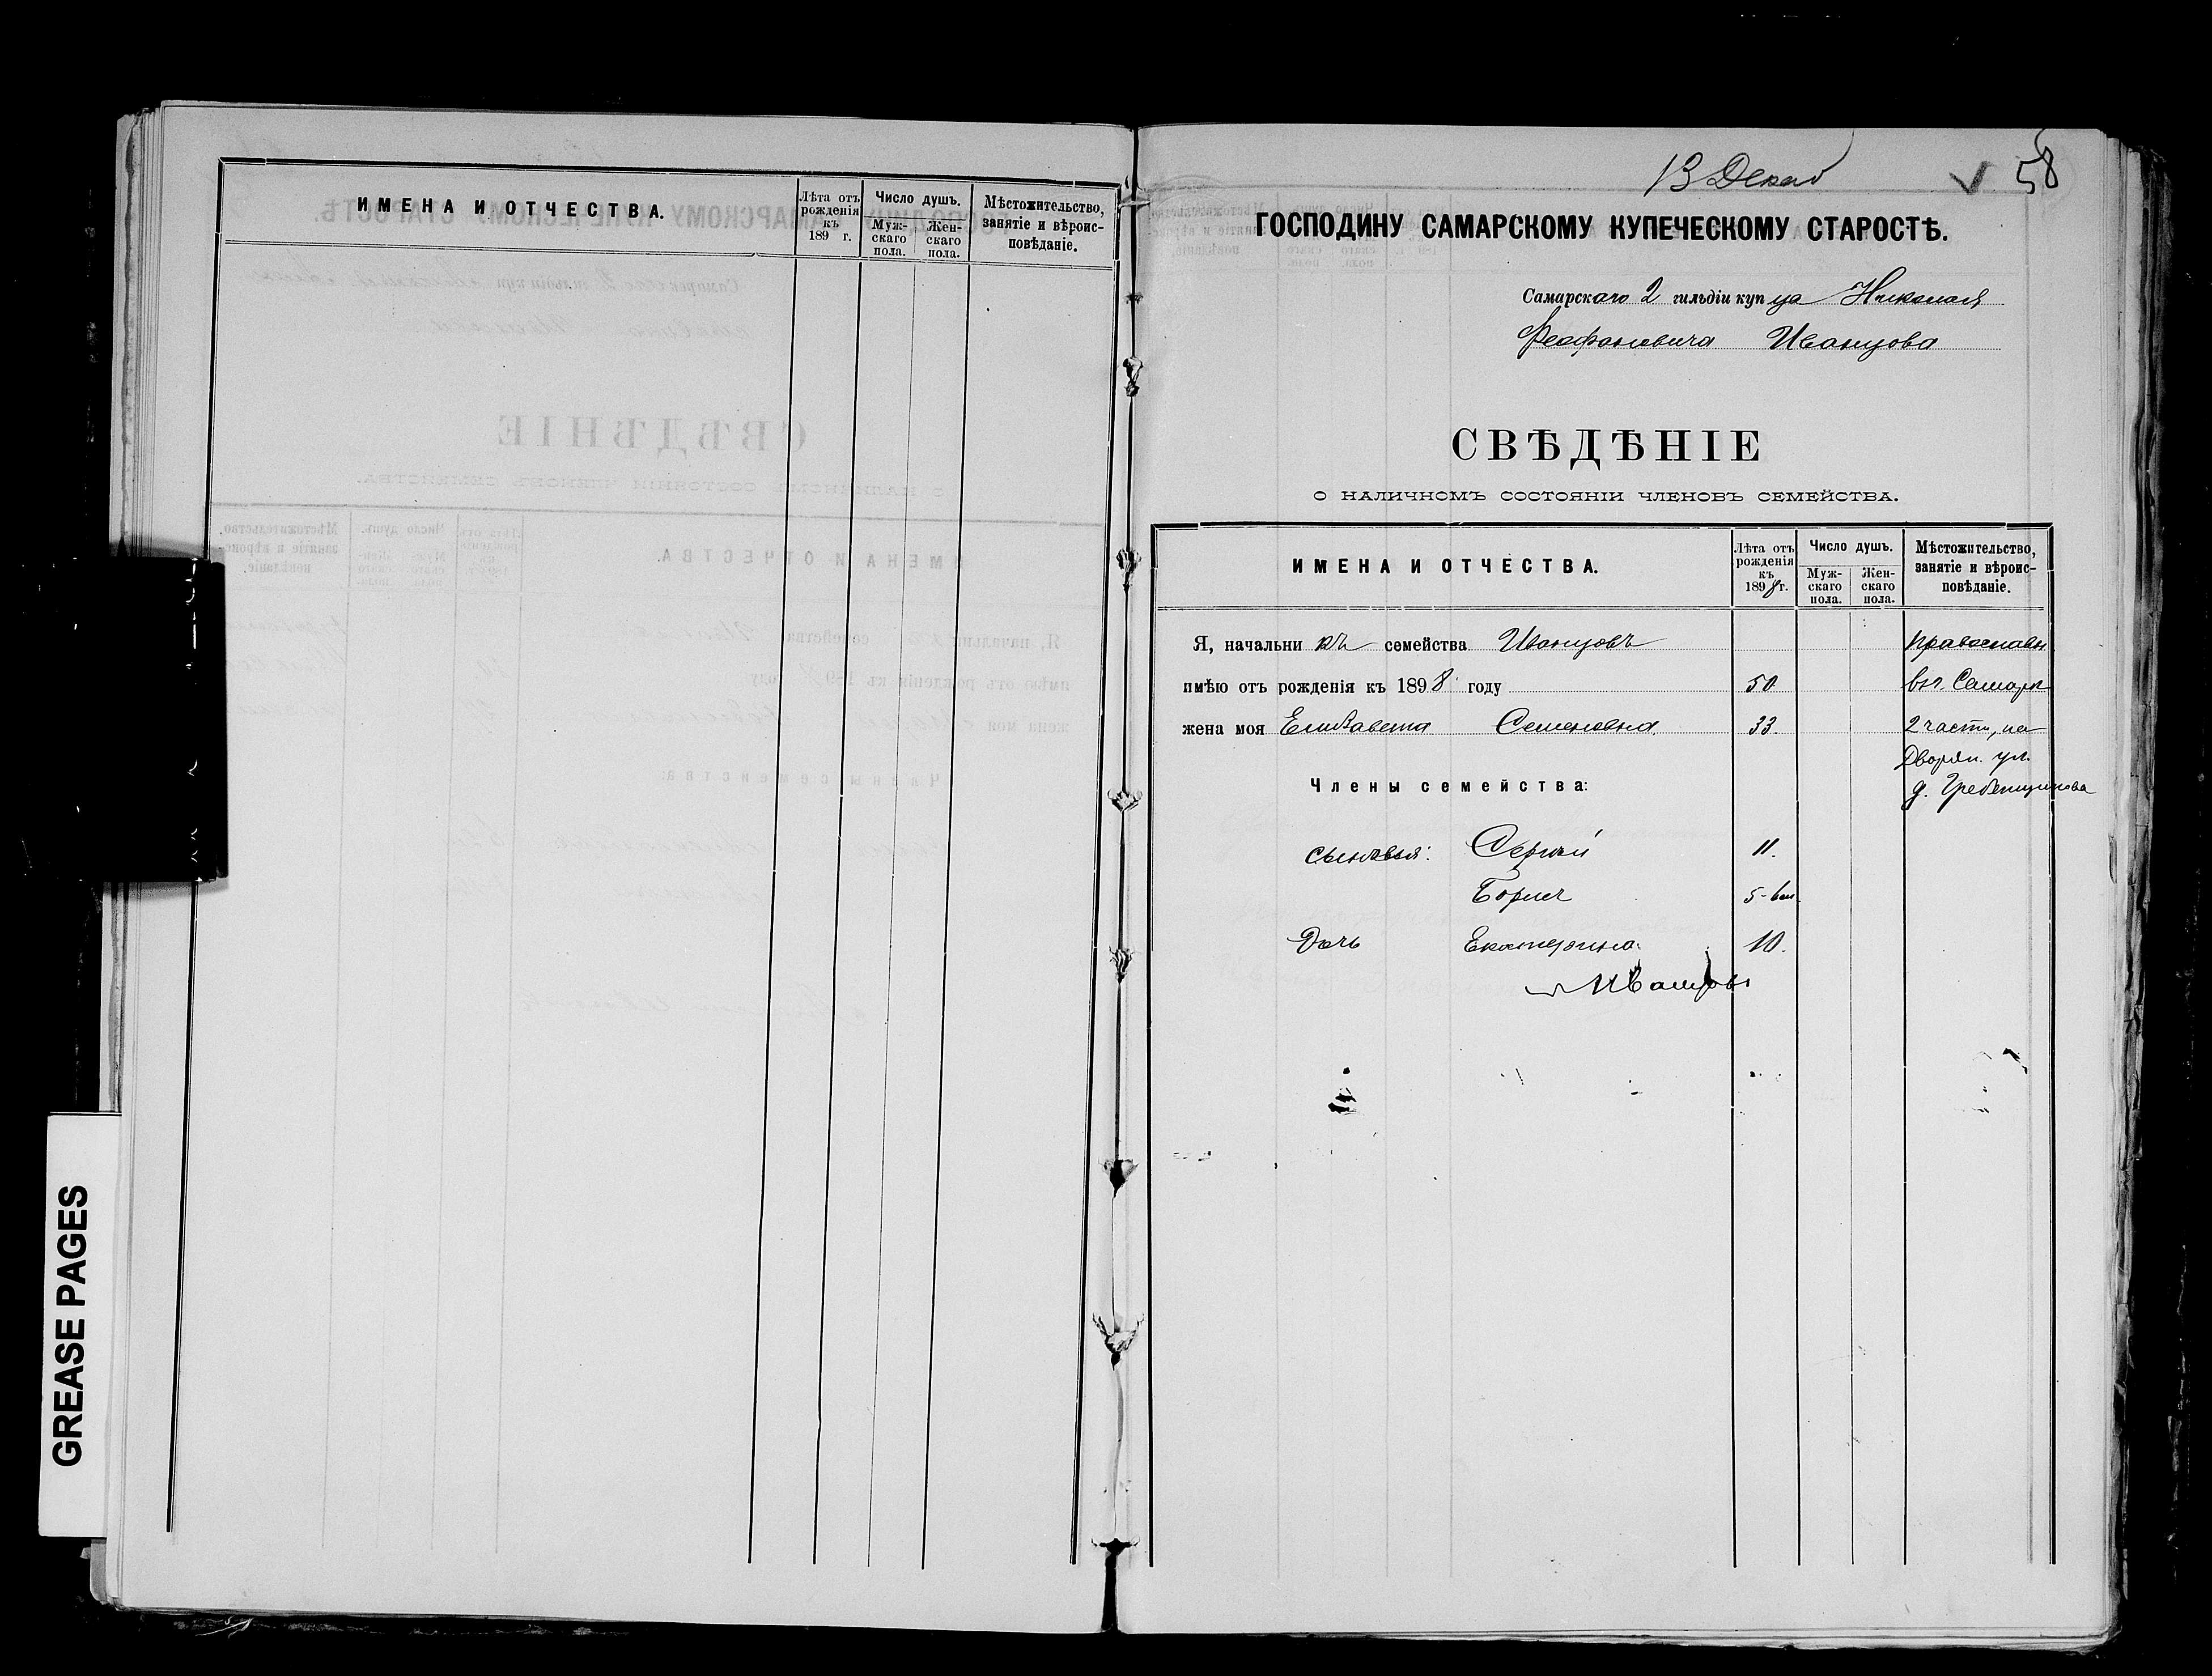 ИМЕНА И ОТЧЕСТВА.
Лѣта отъ рожденія къ 189 г.
Число душъ.
Мужскаго пола.
Женскаго пола.
Мѣстожительство, занятіе и вѣроисповѣданіе.
GREASE PAGES
13 Декаб
58
ГОСПОДИНУ САМАРСКОМУ КУПЕЧЕСКОМУ СТАРОСТѢ.
Самарскаго 2 гильдіи купца Николая
Феофановича Иванцова
СВѢДѢНІЕ
О НАЛИЧНОМЪ СОСТОЯНІИ ЧЛЕНОВЪ СЕМЕЙСТВА.
ИМЕНА И ОТЧЕСТВА.
Лѣта отъ рожденія къ 1898 г.
Число душъ.
Муж-скаго пола.
Жен-скаго пола.
Мѣстожительство, занятіе и вѣроис-повѣданіе.
Я, начальникъ семейства Иванцовъ православн
имѣю отъ рожденія къ 1898 году 50 въ г. Самарѣ
жена моя Елизавета Семеновна 33. 2 части, на
Дворян. ул.
Члены семейства: д. Гребенщикова
сыновья: Сергѣй 11.
Борисъ 5-
Дочь Екатерина 10.
Иванцовъ